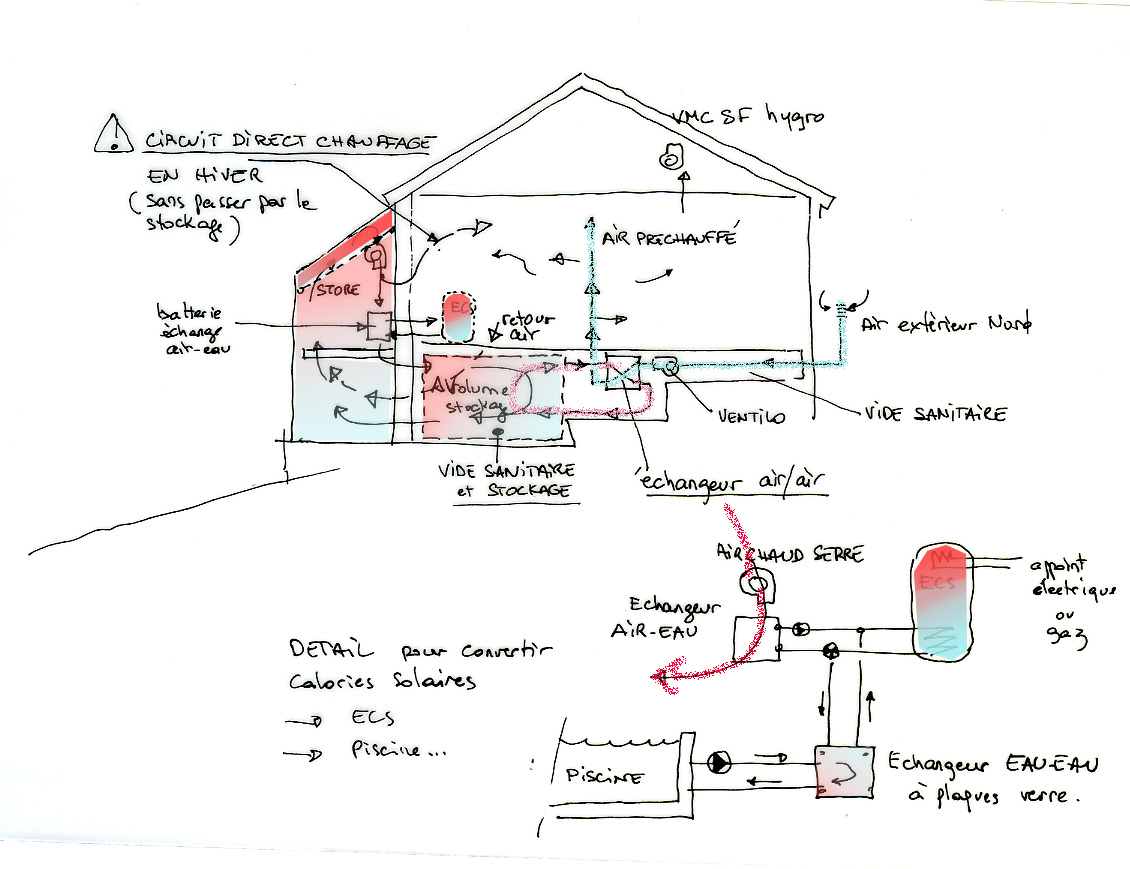 VMC SF hygro
CIRCUIT DIRECT CHAUFFAGE
EN HIVER
(sans passer par le
stockage)
AIR PRECHAUFFÉ
/STORE
ECS
batterie
échange
air-eau
retour
air
Air extèrieur Nord
Volume
stockage
VENTILO
VIDE SANITAIRE
VIDE SANITAIRE
et STOCKAGE
échangeur air/air
AIR CHAUD SERRE
Echangeur
AIR-EAU
ECS
appoint
électrique
ou
gaz
DETAIL pour convertir
Calories Solaires
→ ECS
→ Piscine...
PISCINE
Echangeur EAU-EAU
à plaques verre.